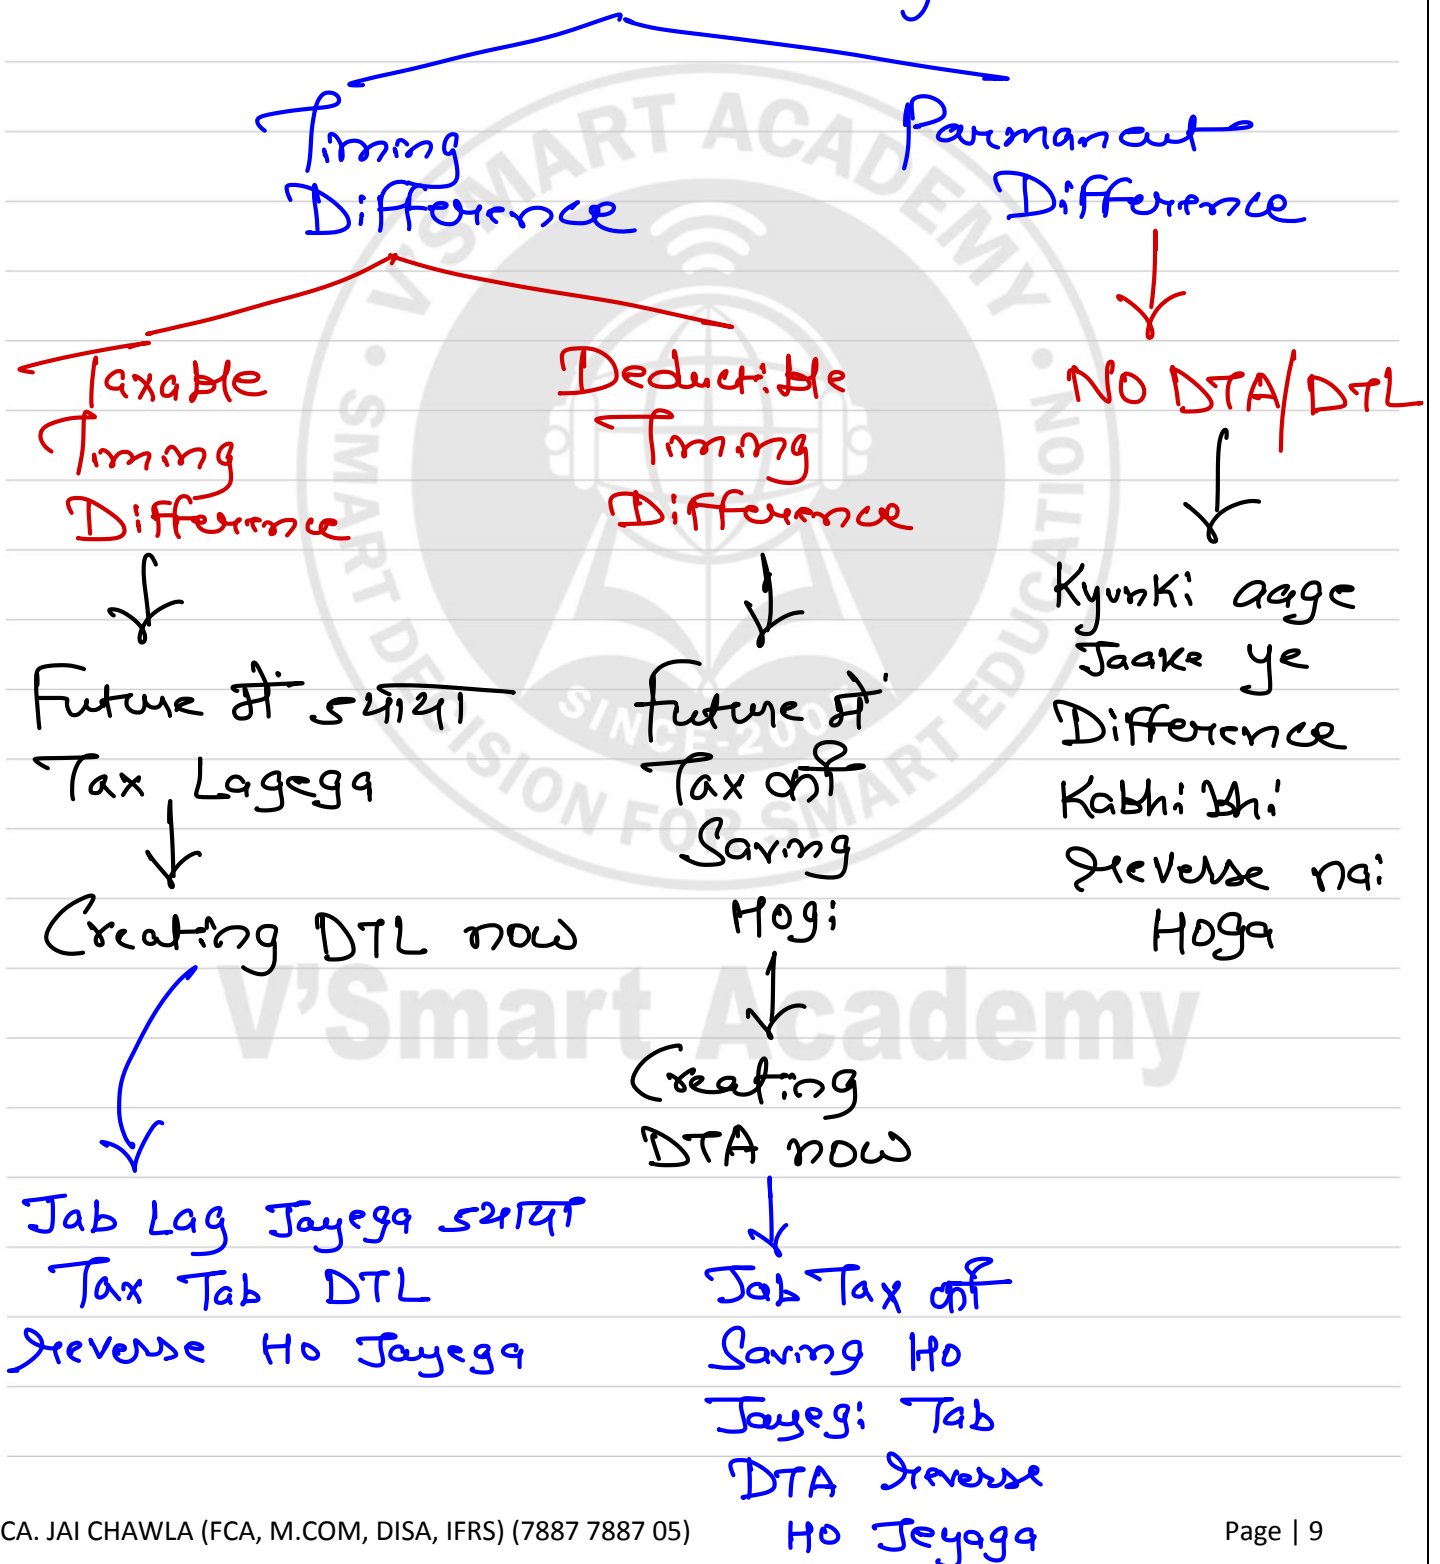 Timing
Difference
Parmanent
Difference
Taxable
Timing
Difference
Deductible
Timing
Difference
NO DTA/DTL
Future में ज्यादा
Tax Lagega
Creating DTL now
Jab Lag Jayega ज्यादा
Tax Tab DTL
reverse Ho Jayega
Future में
Tax की
Saving
Hogi
Creating
DTA now
Jab Tax की
Saving Ho
Jayegi Tab
DTA reverse
Ho Jeyaga
Kyunki aage
Jaake ye
Difference
Kabhi bhi
reverse nai
Hoga
V'SMART ACADEMY
SMART DECISION FOR SMART EDUCATION
V'Smart Academy
CA. JAI CHAWLA (FCA, M.COM, DISA, IFRS) (7887 7887 05)
Page | 9